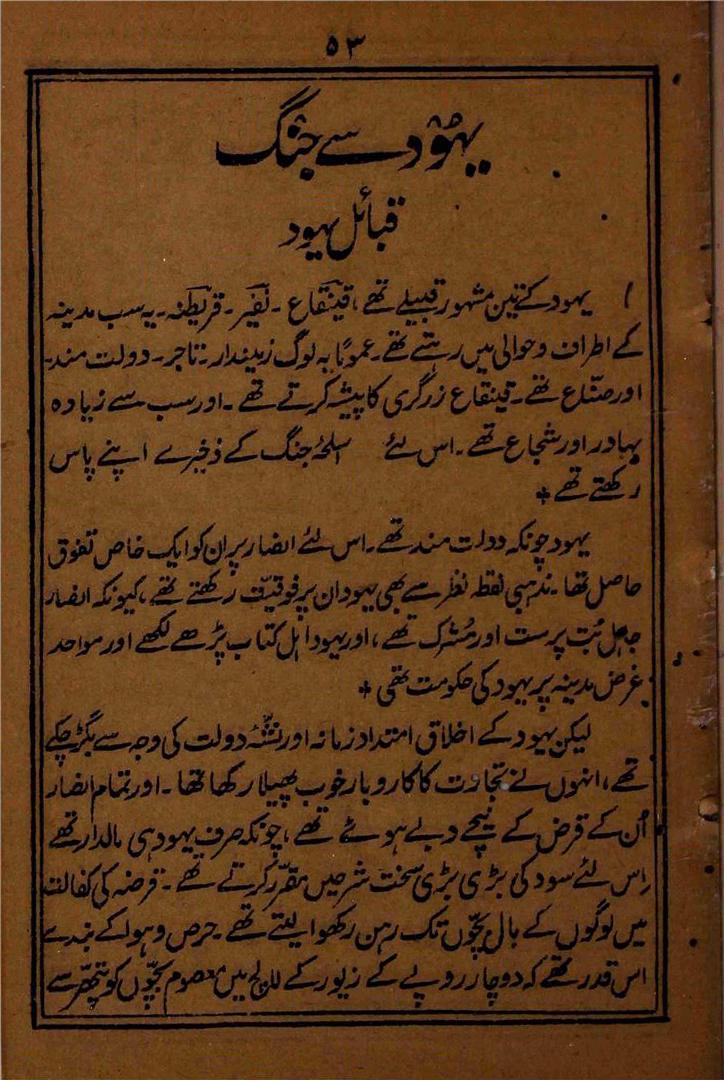 ۵۳
یہود سے جنگ
قبائل یہود
۱ یہود کے تین مشہور قبیلے تھے، قینقاع ۔ نضیر ۔ قریظہ ۔ یہ سب مدینہ
کے اطراف و حوالی میں رہتے تھے ۔ عموماً یہ لوگ زمیندار ۔ تاجر ۔ دولت مند ۔
اور صنّاع تھے ۔ قینقاع زرگری کا پیشہ کرتے تھے ۔ اور سب سے زیادہ
بہادر اور شجاع تھے ۔ اس لئے اسلحۂ جنگ کے ذخیرے اپنے پاس
رکھتے تھے *
یہود چونکہ دولت مند تھے ۔ اس لئے انصار پر ان کو ایک خاص تفوق
حاصل تھا ۔ مذہبی نقطہ نظر سے بھی یہود ان پر فوقیّت رکھتے تھے، کیونکہ انصار
جاہل بُت پرست اور مُشرک تھے، اور یہود اہل کتاب پڑھے لکھے اور مواحد
غرض مدینہ پر یہود کی حکومت تھی *
لیکن یہود کے اخلاق امتداد زمانہ اور نشّہ دولت کی وجہ سے بگڑ چکے
تھے، انہوں نے تجارت کا کاروبار خوب پھیلا رکھا تھا ۔ اور تمام انصار
اُن کے قرض کے نیچے دبے ہوئے تھے، چونکہ صرف یہود ہی مالدار تھے
اِس لئے سود کی بڑی بڑی سخت شرحیں مقرّر کرتے تھے ۔ قرضہ کی کفالت
میں لوگوں کے بال بچّوں تک رہن رکھوا لیتے تھے ۔ حرص و ہوا کے بندے
اس قدر تھے کہ دو چار روپے کے زیور کے لالچ میں معصوم بچّوں کو پتھر سے